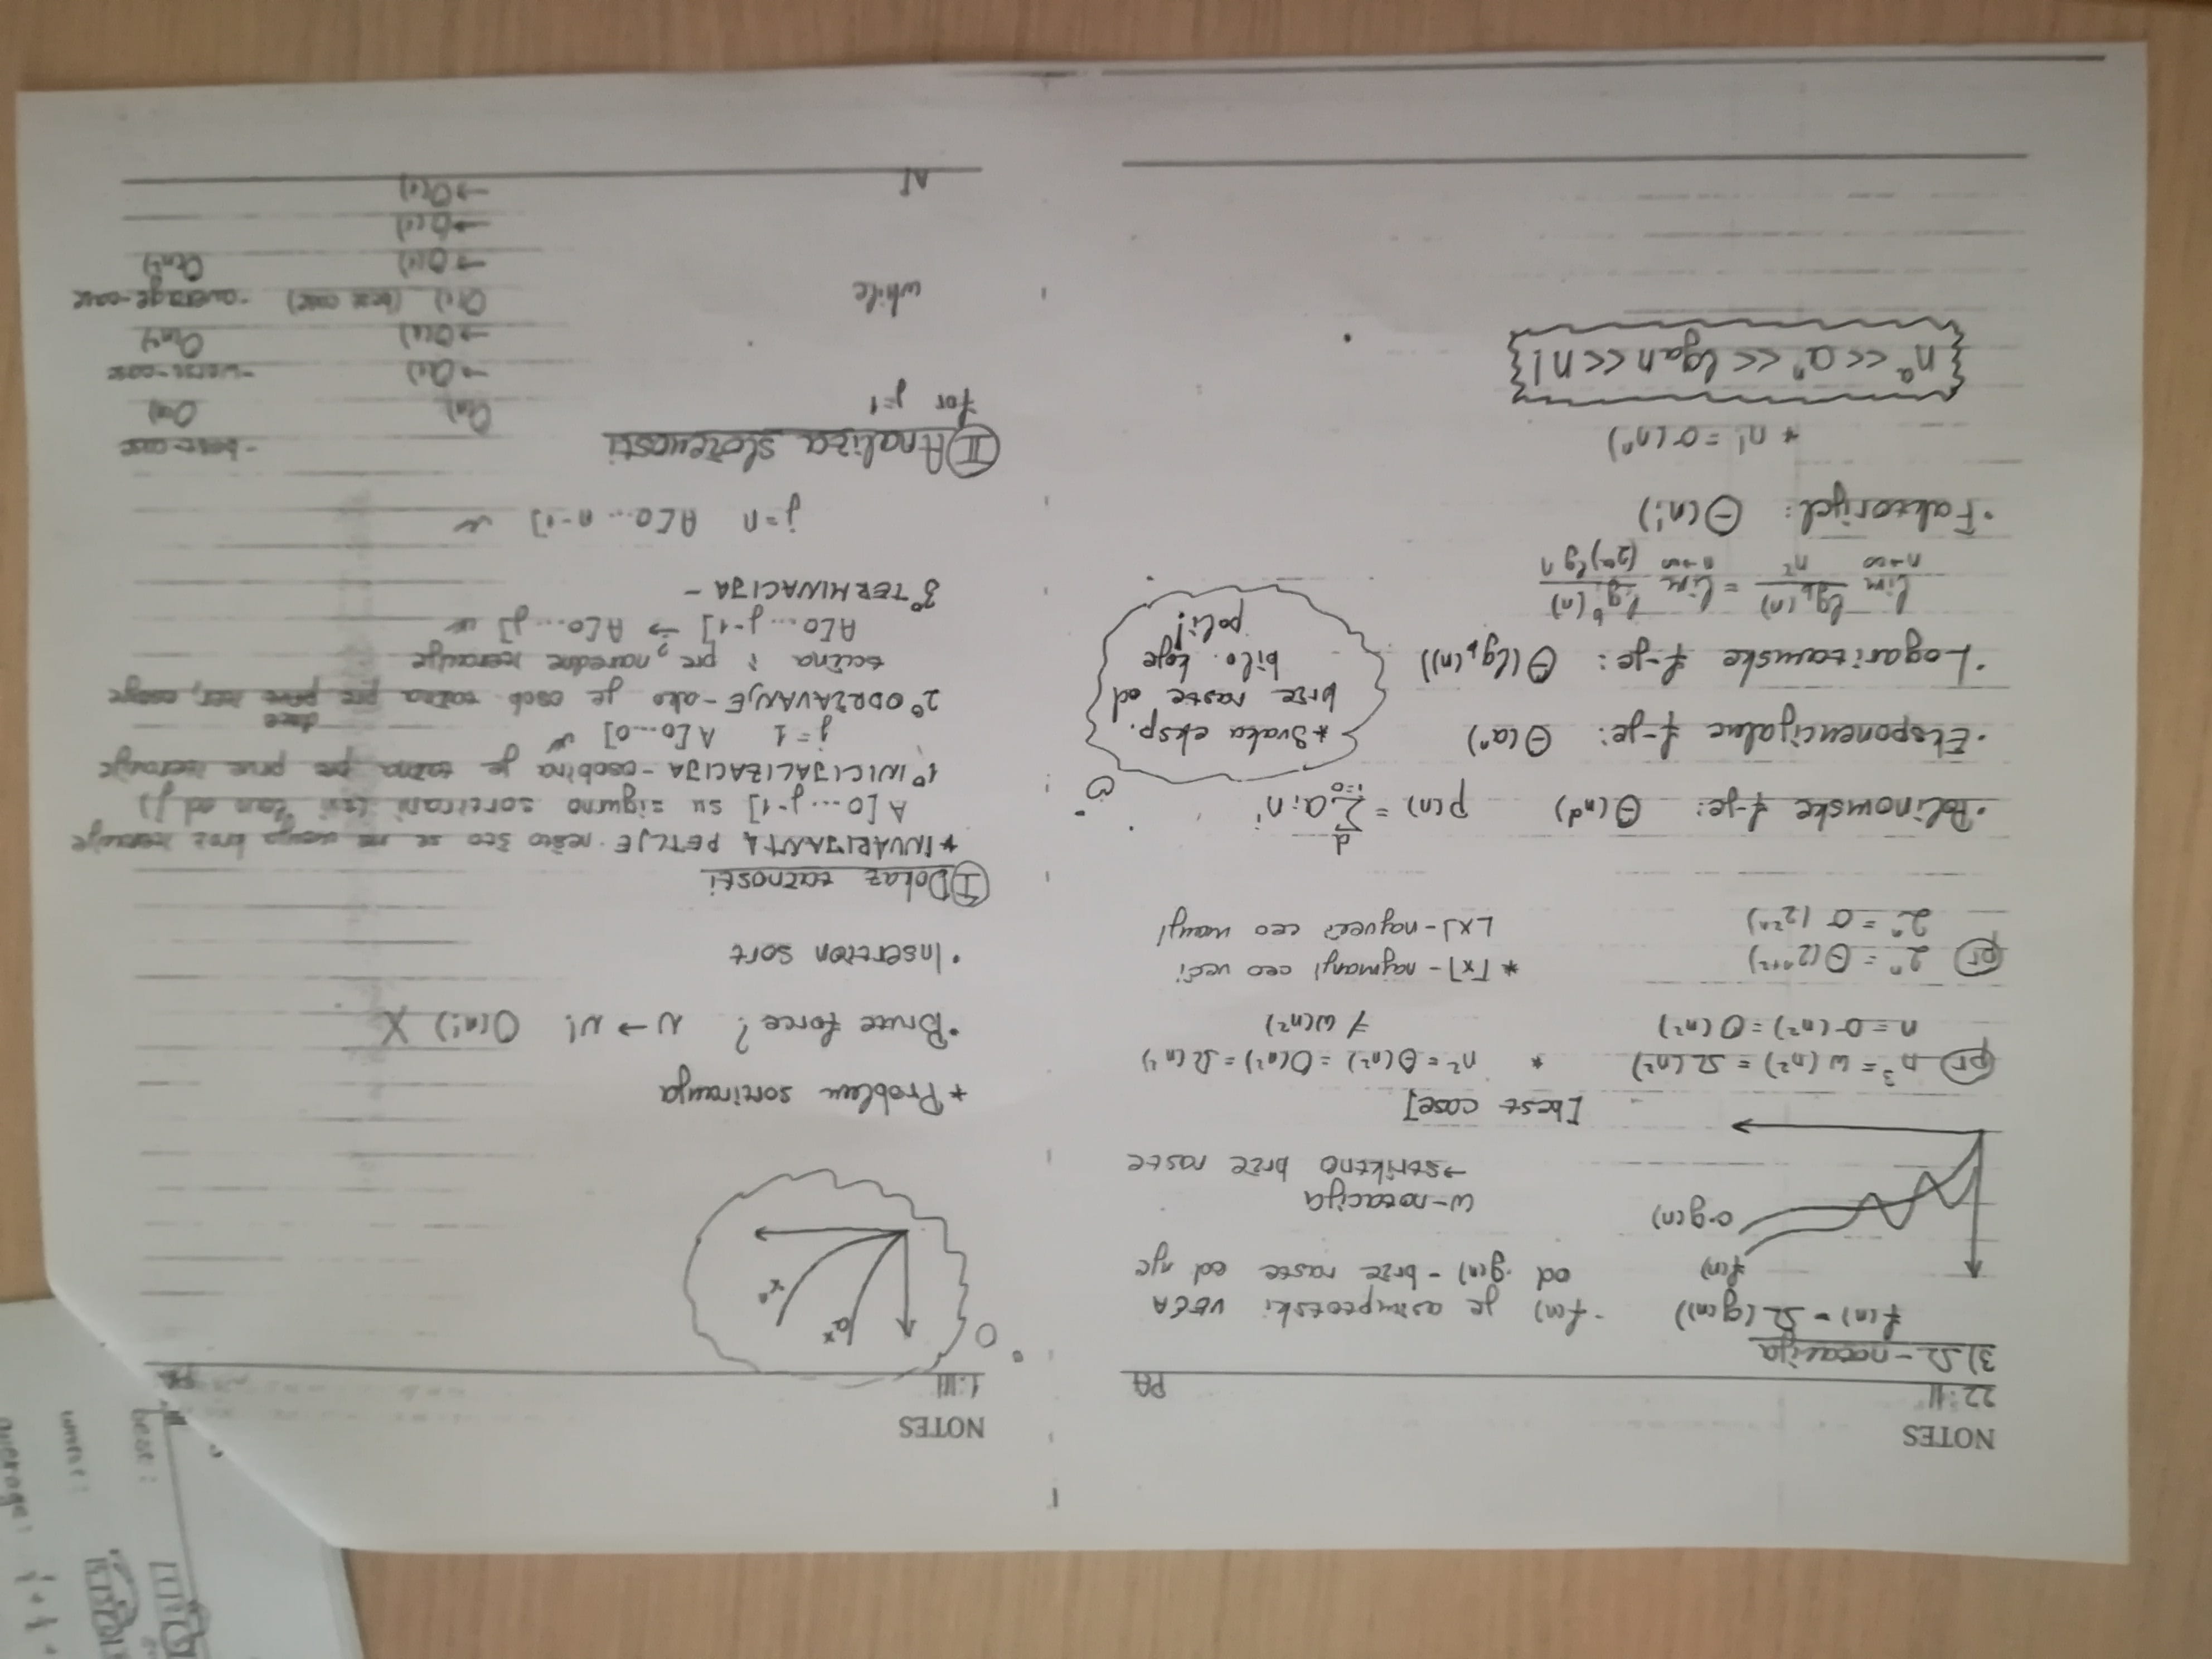 NOTES
22.II PA
3) Ω-notacija
f(n) = Ω(g(n)) - f(n) je asimptotski VEĆA
od g(n) - brže raste od nje
f(n)
c·g(n)
ω-notacija
→ striktno brže raste
[best case]
pr n³ = ω(n²) = Ω(n²) * n² = Θ(n²) = O(n²) = Ω(n²)
n = o(n²) = O(n²) ≠ ω(n²)
pr 2ⁿ = Θ(2ⁿ⁺²) * ⌈x⌉ - najmanji ceo veći
2ⁿ = o(2²ⁿ) ⌊x⌋ - najveći ceo manji
· Polinomske f-je: Θ(n^d) p(n) = Σ_{i=0}^{d} a_i n^i
· Eksponencijalne f-je: Θ(aⁿ)
* Svaka eksp.
brže raste od
bilo koje
poli!
· Logaritamske f-je: Θ(lg_b(n))
lim_{n→∞} = lim_{n→∞} lg^b(n) / (2^a)^{lg n}
· Faktorijel: Θ(n!)
* n! = o(nⁿ)
n^a << aⁿ << lg_a n << n!
NOTES
1.III
a^x
x^a
* Problem sortiranja
· Brute force? N → N! O(n!) X
· Insertion sort
I Dokaz tačnosti
* INVARIJANTA PETLJE - nešto što se ne menja kroz iteracije
A[0...j-1] su sigurno sortirani
1° INICIJALIZACIJA - osobina je tačna pre prve iteracije
j=1 A[0...0] ✓
2° ODRŽAVANJE - ako je osob. tačna pre iter,
tačna i pre naredne iteracije
A[0...j-1] →? A[0...j] ✓
3° TERMINACIJA -
j=n A[0...n-1] ✓
II Analiza složenosti
- best-case
for j=1 O(n) O(n)
→ O(1) - worst-case
→ O(1) O(n²)
while O(1) (best case) - average-case
→ O(1) O(n²)
→ O(1)
→ O(1)
N
best:
average: